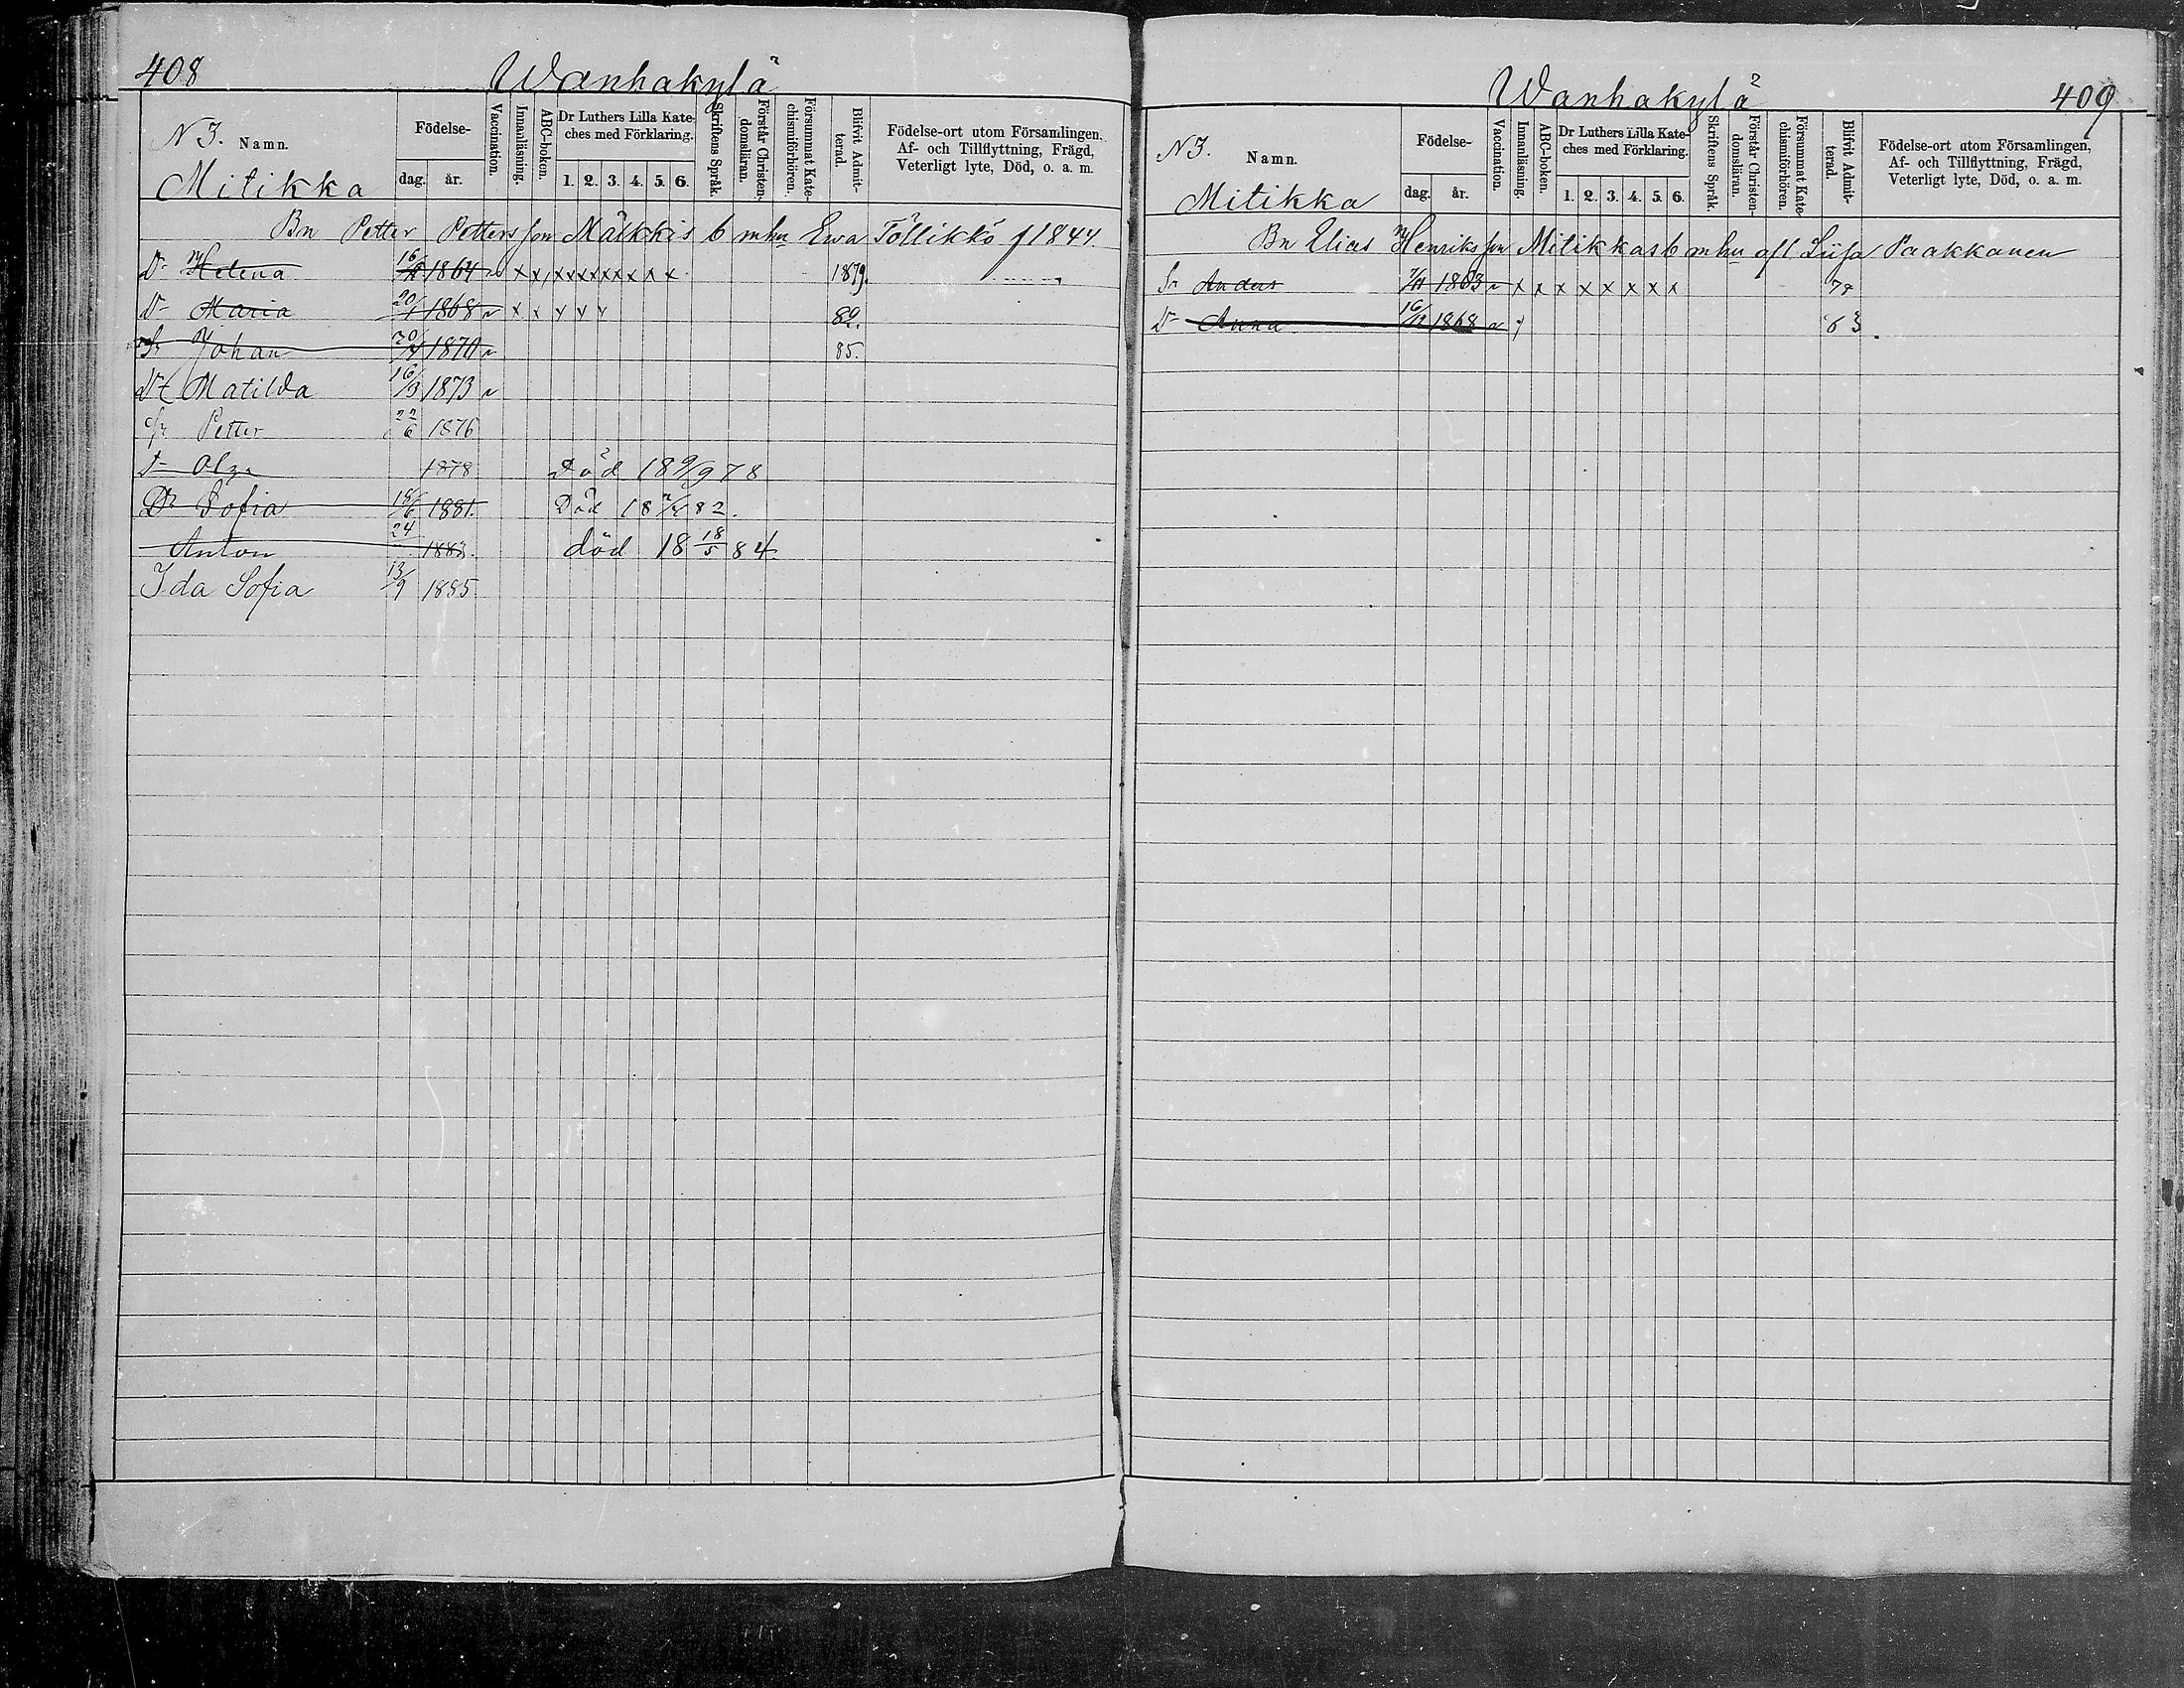 408
Wanhakylä
N 3. Namn.
Mitikka
Födelse-
dag. år.
Vaccination.
Innanläsning.
ABC-boken.
Dr Luthers Lilla Kate-
ches med Förklaring.
1. 2. 3. 4. 5. 6.
Skriftens Språk.
Förstår Christen-
domsläran.
Försummat Kate-
chismiförhören.
Blifvit Admit-
terad.
Födelse-ort utom Församlingen,
Af- och Tillflyttning, Frägd,
Veterligt lyte, Död, o. a. m.
Bn Petter Pettersson Mälkkis b m hu Ewa Töllikkö f 1844.
Dr Helena 1864 x x x x x x x x x x 1879.
Dr Maria 20/1 1868 x x x x x 82.
Sr Johan 1870 85.
Dr Matilda 16/3 1873
Sr Petter 22/6 1876
Dr Olga 1878 Död 18 9/9 78
Dr Sofia 1881. Död 18 82.
Anton 24 1883. död 18 18/5 84.
Ida Sofia 13/9 1885
Wanhakylä
409
N 3. Namn.
Mitikka
Födelse-
dag. år.
Vaccination.
Innanläsning.
ABC-boken.
Dr Luthers Lilla Kate-
ches med Förklaring.
1. 2. 3. 4. 5. 6.
Skriftens Språk.
Förstår Christen-
domsläran.
Försummat Kate-
chismiförhören.
Blifvit Admit-
terad.
Födelse-ort utom Församlingen,
Af- och Tillflyttning, Frägd,
Veterligt lyte, Död, o. a. m.
Bn Elias Henriksson Mitikkas b m hu afl Liisa Paakkanen
Sr Anders 7/11 1863 x x x x x x x x 78
Dr Anna 16/12 1868 83